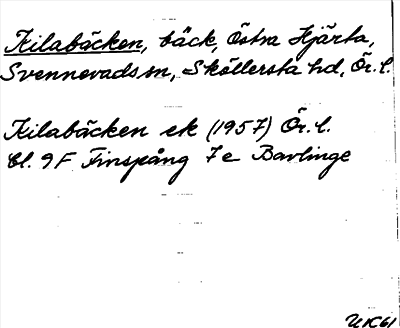 Kilabäcken, bäck, Östra Hjärta,
Svennevads sn, Sköllersta hd, Ör. l.
Kilabäcken ek (1957) Ör. l.
Bl. 9F Finspång 7e Bavlinge
UK61